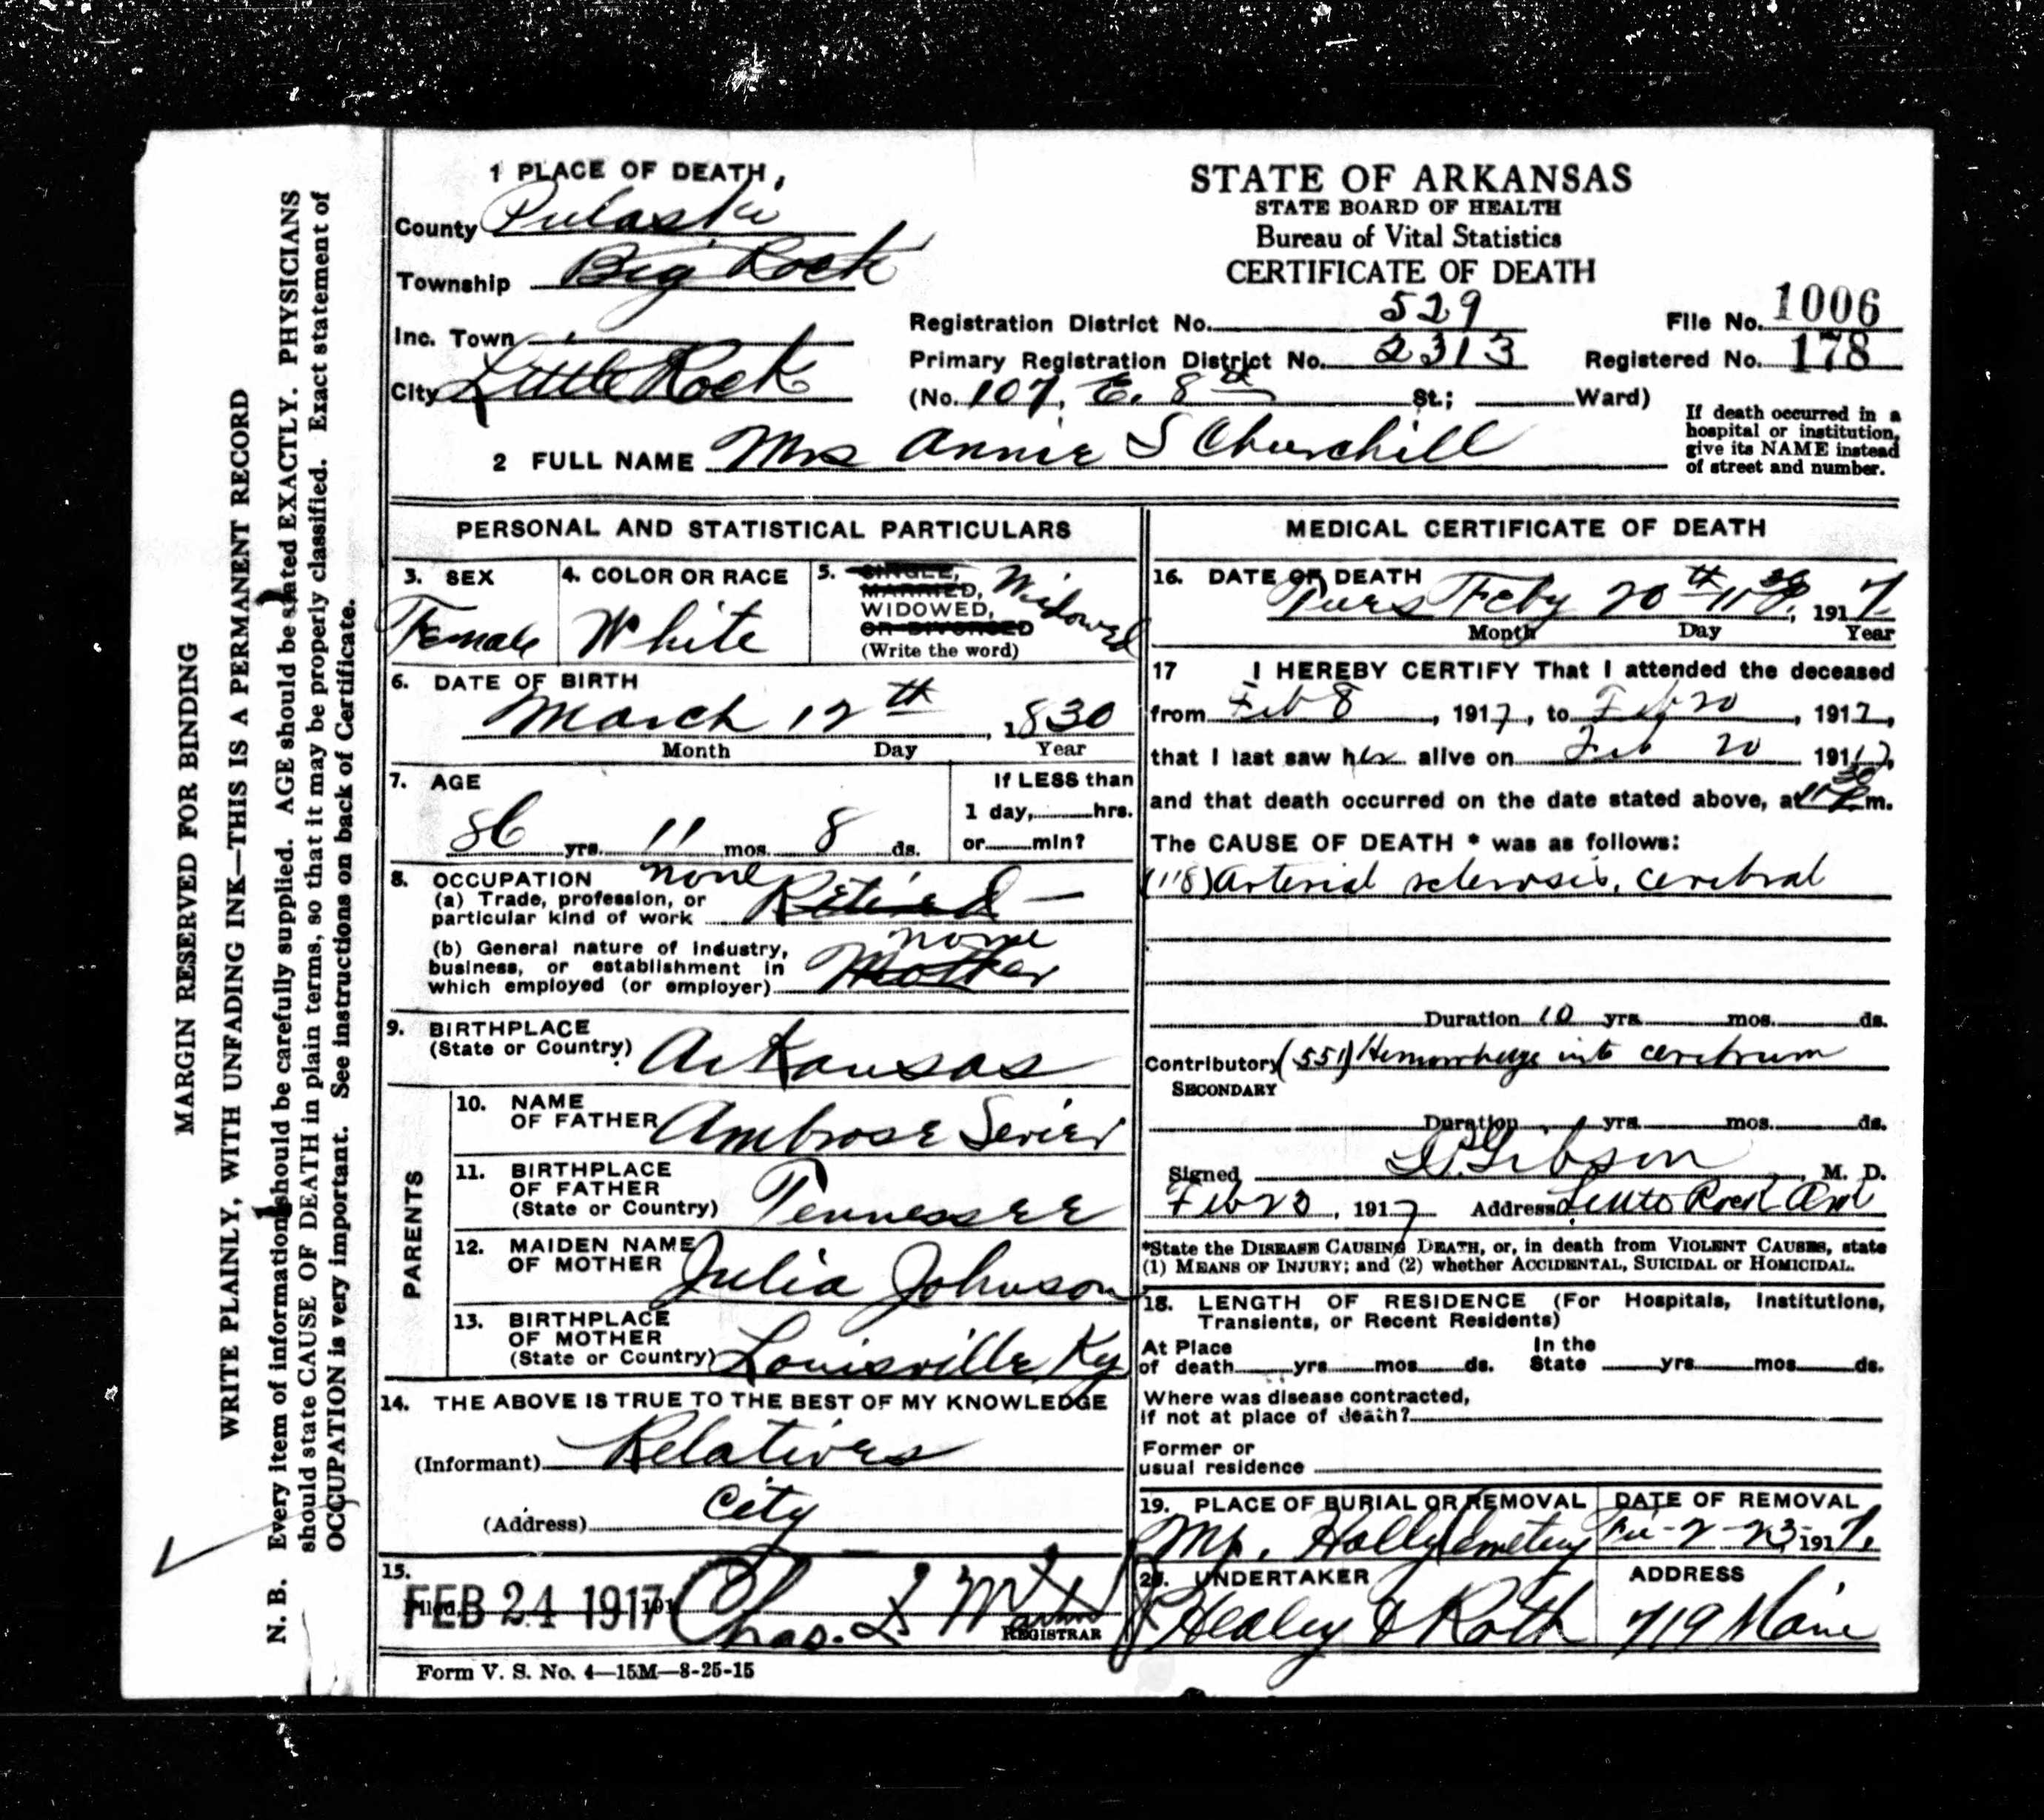 MARGIN RESERVED FOR BINDING
WRITE PLAINLY, WITH UNFADING INK—THIS IS A PERMANENT RECORD
N. B. Every item of information should be carefully supplied. AGE should be stated EXACTLY. PHYSICIANS
should state CAUSE OF DEATH in plain terms, so that it may be properly classified. Exact statement of
OCCUPATION is very important. See instructions on back of Certificate.
1 PLACE OF DEATH,
County Pulaski
Township Big Rock
Inc. Town
City Little Rock
STATE OF ARKANSAS
STATE BOARD OF HEALTH
Bureau of Vital Statistics
CERTIFICATE OF DEATH
Registration District No. 529 File No. 1006
Primary Registration District No. 2313 Registered No. 178
(No. 107, E. 8th St.; Ward)
If death occurred in a
hospital or institution,
give its NAME instead
of street and number.
2 FULL NAME Mrs Annie S Churchill
PERSONAL AND STATISTICAL PARTICULARS
3. SEX
Female
4. COLOR OR RACE
White
5. SINGLE,
MARRIED,
WIDOWED,
OR DIVORCED
(Write the word)
Widowed
6. DATE OF BIRTH
March 12th, 1830
Month Day Year
7. AGE
86 yrs. 11 mos. 8 ds.
If LESS than
1 day, hrs.
or min?
8. OCCUPATION
(a) Trade, profession, or
particular kind of work
none
Retired
(b) General nature of industry,
business, or establishment in
which employed (or employer)
none
Mother
9. BIRTHPLACE
(State or Country) Arkansas
PARENTS
10. NAME
OF FATHER Ambrose Sevier
11. BIRTHPLACE
OF FATHER
(State or Country) Tennessee
12. MAIDEN NAME
OF MOTHER Julia Johnson
13. BIRTHPLACE
OF MOTHER
(State or Country) Louisville Ky
14. THE ABOVE IS TRUE TO THE BEST OF MY KNOWLEDGE
(Informant) Relatives
(Address) City
15.
Filed, FEB 24 1917 191 Chas.
REGISTRAR
Form V. S. No. 4—15M—8-25-15
MEDICAL CERTIFICATE OF DEATH
16. DATE OF DEATH
Tues Feby 20th 11 30 P, 1917
Month Day Year
17 I HEREBY CERTIFY That I attended the deceased
from Feb 8, 1917, to Feb 20, 1917,
that I last saw her alive on Feb 20 1917,
and that death occurred on the date stated above, at 11 30 P m.
The CAUSE OF DEATH * was as follows:
(118) Arterial sclerosis, cerebral
Duration 10 yrs. mos. ds.
Contributory (551) Hemorrhage into cerebrum
SECONDARY
Duration yrs. mos. ds.
Signed Gibson, M. D.
Feb 23, 1917 Address Little Rock Ark
*State the DISEASE CAUSING DEATH, or, in death from VIOLENT CAUSES, state
(1) MEANS OF INJURY; and (2) whether ACCIDENTAL, SUICIDAL or HOMICIDAL.
18. LENGTH OF RESIDENCE (For Hospitals, Institutions,
Transients, or Recent Residents)
At Place
of death yrs. mos. ds.
In the
State yrs. mos. ds.
Where was disease contracted,
If not at place of death?
Former or
usual residence
19. PLACE OF BURIAL OR REMOVAL
Mt. Holly Cemetery
DATE OF REMOVAL
Fri-2-23-1917.
20. UNDERTAKER
Healey & Roth
ADDRESS
719 Main